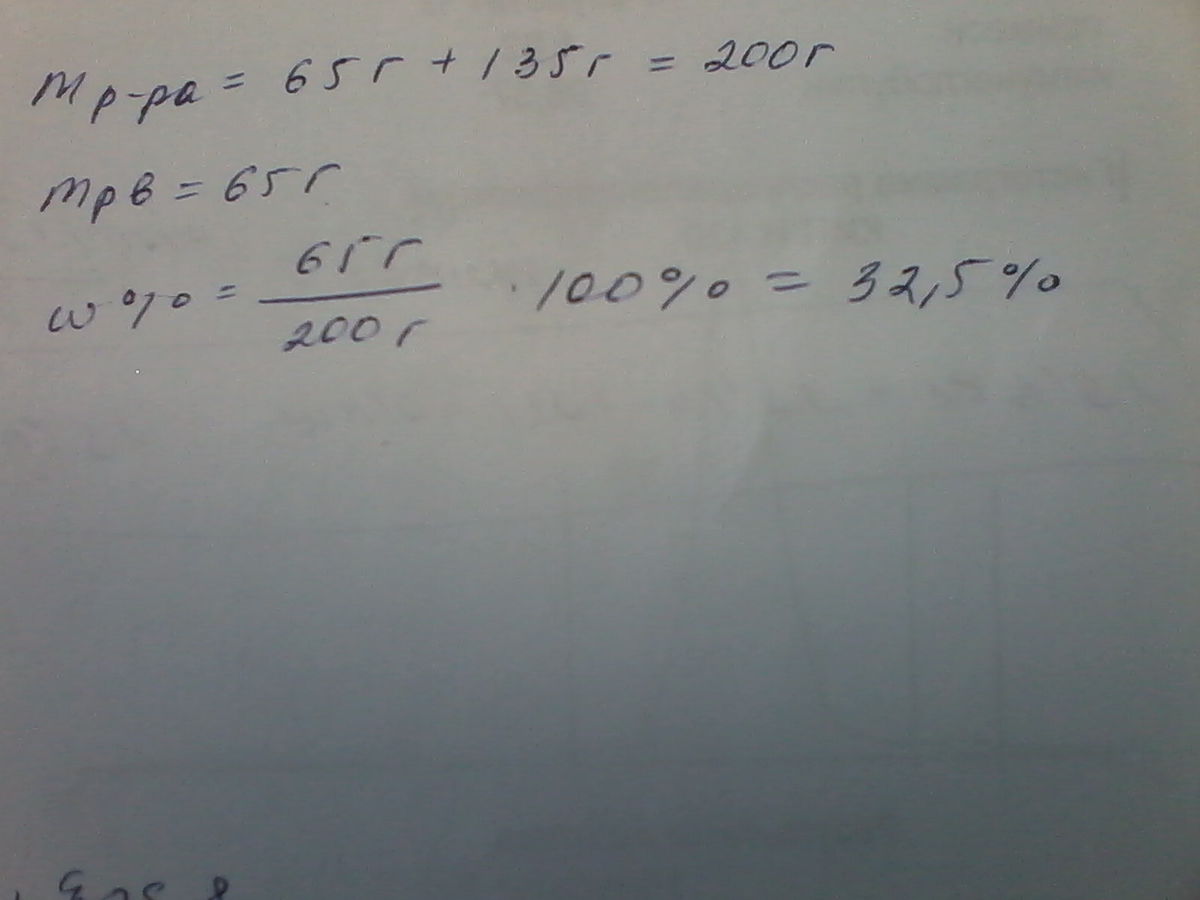 m р-ра = 65 г + 135 г = 200 г
m рв = 65 г
ω % = 65 г / 200 г · 100 % = 32,5 %